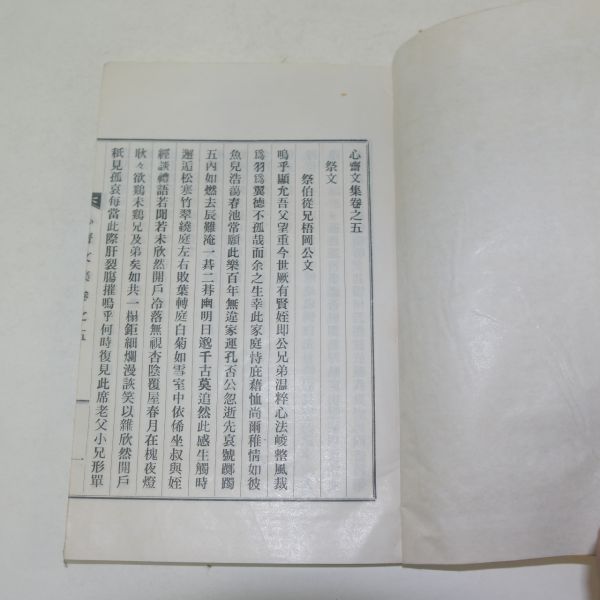 心齋文集卷之五
祭文
祭伯從兄梧岡公文
嗚乎顯允吾父望重今世厥有賢姪即公兄弟溫粹心法峻整風裁
爲羽爲翼德不孤哉而余之生幸此家庭恃庇藉恤尚爾稚情如彼
魚兒浩蕩春池常願此樂百年無違家運孔否公忽逝先哀號躑躅
五內如燃去辰難淹一朞二朞幽明日邈千古莫追然此感生觸時
邂逅松寒竹翠繞庭左右敗葉轉庭白菊如雪室中依俙坐叔與姪
經談禮語若聞若未欣然開戶冷落無視杏陰覆屋春月在槐夜燈
耿々欲鷄未鷄兄及弟矣如共一榻鉅細爛漫談笑以雜欣然開戶
秖見孤哀每當此際肝裂膓摧嗚乎何時復見此席老父小兄形單
心齋文集卷之五
一